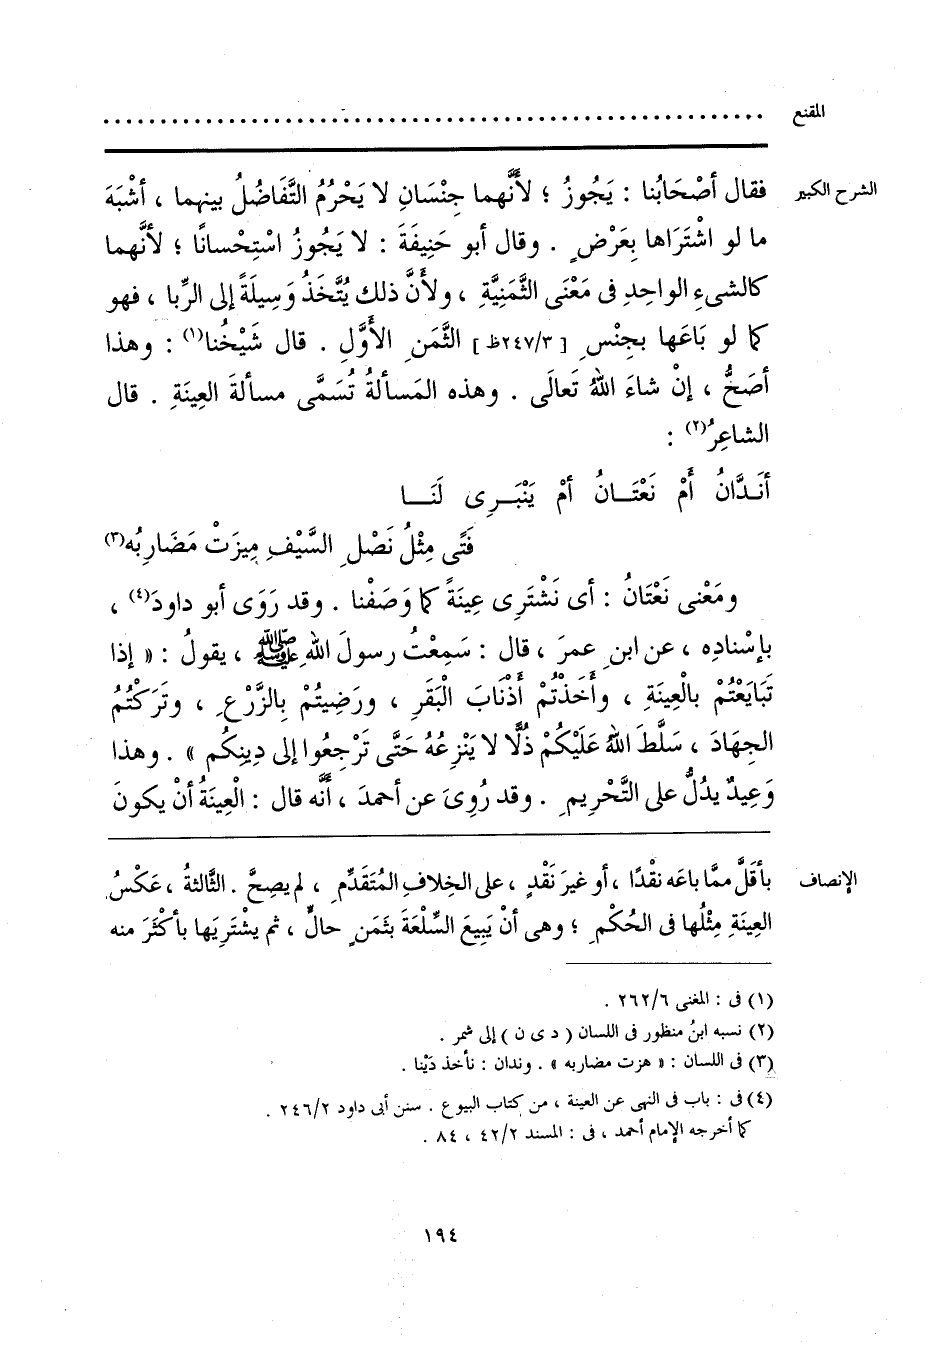 المقنع ................................................
الشرح الكبير فقال أصْحَابُنا : يَجُوزُ ؛ لأنَّهما جِنْسَانِ لا يَحْرُمُ التَّفَاضُلُ بينهما ، أشْبَهَ
ما لو اشْتَرَاها بِعَرْضٍ . وقال أبو حَنِيفَةَ : لا يَجُوزُ اسْتِحْسانًا ؛ لأنَّهما
كالشىءِ الواحِدِ فى مَعْنَى الثَّمَنِيَّةِ ، ولأنَّ ذلك يُتَّخَذُ وَسِيلَةً إلى الرِّبا ، فهو
كما لو بَاعَها بجِنْسِ [ ٢٤٧/٣ظ ] الثَّمَنِ الأوَّلِ . قال شَيْخُنا(١) : وهذا
أصَحُّ ، إنْ شاءَ اللهُ تَعالَى . وهذه المَسألةُ تُسَمَّى مسألةَ العِينَةِ . قال
الشاعِرُ(٢) :
أنَـدَّانُ أَمْ نَعْتَــانُ أمْ يَنْبَــرِى لَنَــا
فَتًى مِثْلُ نَصْلِ السَّيْفِ مِيزَتْ مَضَارِبُه(٣)
ومَعْنى نَعْتَانُ : أى نَشْتَرِى عِينَةً كما وَصَفْنا . وقد رَوَى أبو داودَ(٤) ،
بإسْنادِه ، عن ابنِ عمرَ ، قال : سَمِعْتُ رسولَ اللهِ ﷺ ، يقولُ : « إذا
تَبَايَعْتُمْ بالْعِينَةِ ، وأَخَذْتُمْ أَذْنَابَ الْبَقَرِ ، ورَضِيتُمْ بِالزَّرْعِ ، وتَرَكْتُمُ
الجِهَادَ ، سَلَّطَ اللهُ عَلَيْكُمْ ذُلًّا لا يَنْزِعُهُ حَتَّى تَرْجِعُوا إلى دِينِكُم » . وهذا
وَعِيدٌ يدُلُّ على التَّحْرِيمِ . وقد رُوِىَ عن أحمدَ ، أنَّه قال : الْعِينَةُ أنْ يكونَ
الإنصاف بأقَلَّ ممَّا باعَه نقْدًا ، أو غيرَ نَقْدٍ ، على الخِلافِ المُتَقَدِّمِ ، لم يصِحَّ . الثَّالثةُ ، عَكْسُ
العِينَةِ مِثْلُها فى الحُكْمِ ؛ وهى أنْ يَبِيعَ السِّلْعَةَ بثَمَنٍ حالٍّ ، ثم يشْتَرِيَها بأكْثَرَ منه
(١) فى : المغنى ٢٦٢/٦ .
(٢) نسبه ابنُ منظور فى اللسان ( د ى ن ) إلى شمر .
(٣) فى اللسان : « هزت مضاربه » . وندان : نأخذ دَيْنا .
(٤) فى : باب فى النهى عن العينة ، من كتاب البيوع . سنن أبى داود ٢٤٦/٢ .
كما أخرجه الإمام أحمد ، فى : المسند ٤٢/٢ ، ٨٤ .
١٩٤